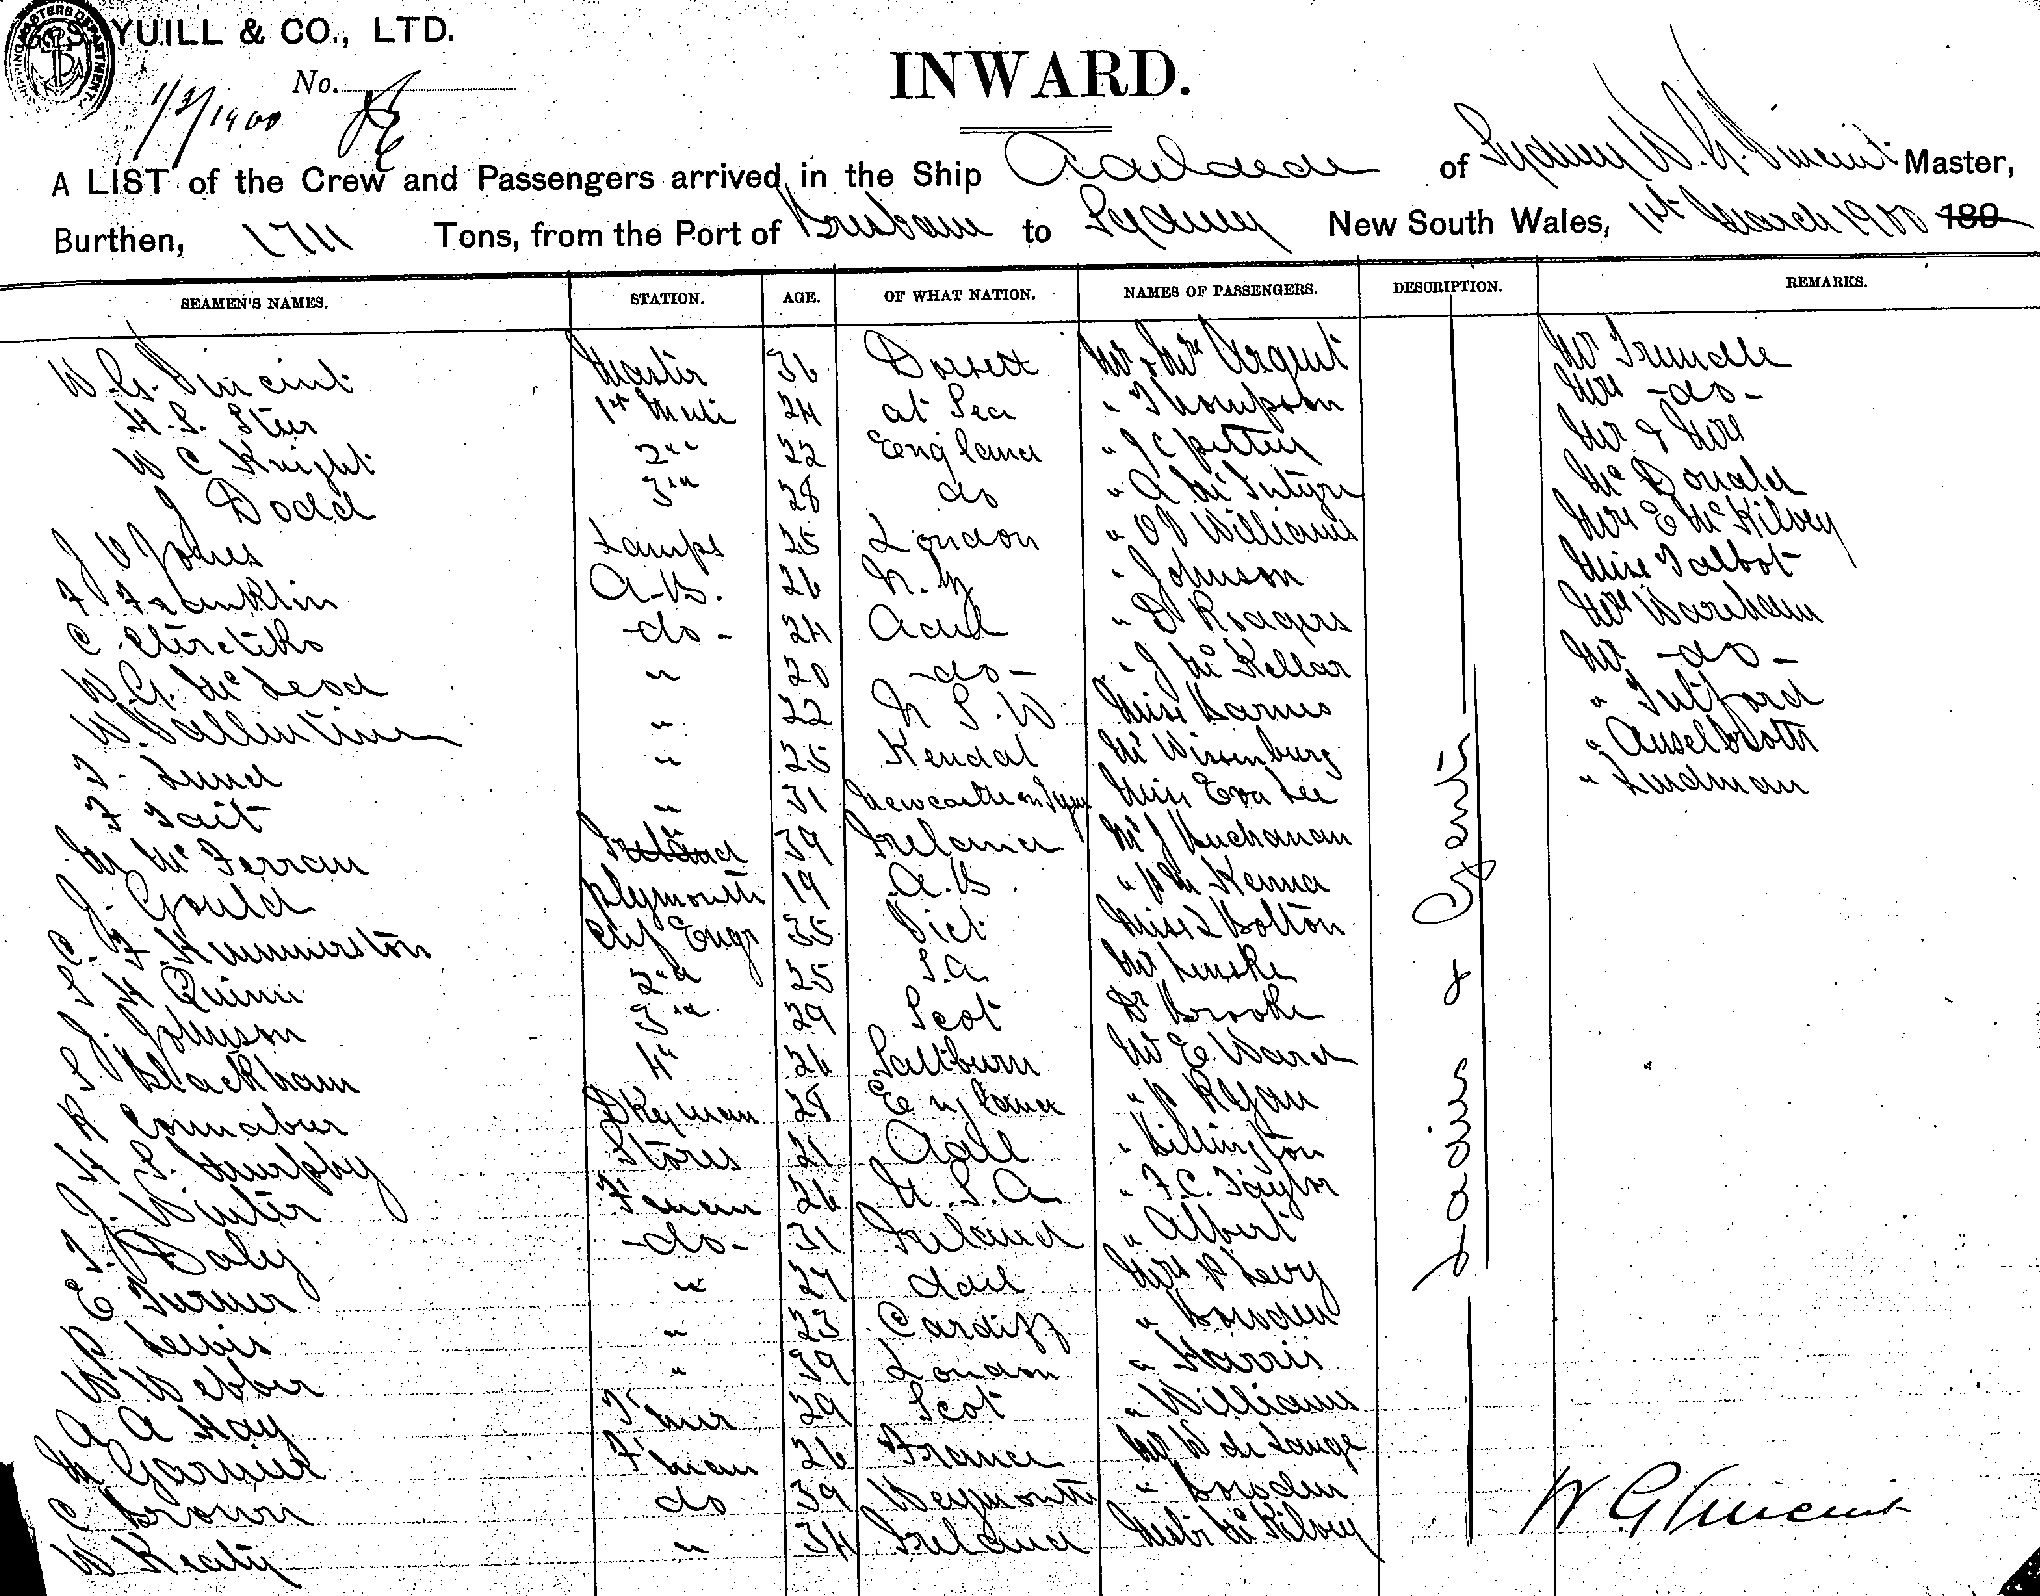 YUILL & CO., LTD.
No.
1/3/1900
INWARD.
A LIST of the Crew and Passengers arrived in the Ship of Sydney W. G. Vincent Master,
Burthen, 1711 Tons, from the Port of Brisbane to Sydney New South Wales, 1st March 1900 189
SEAMEN'S NAMES. STATION. AGE. OF WHAT NATION. NAMES OF PASSENGERS. DESCRIPTION. REMARKS.
W. G. Vincent Master 36 Dorset Mr & Mrs Argent Mr Trundle
H. S. 1st Mate 24 at Sea " Thompson Mrs -do-
W C Knight 2nd 22 England " J C Mr & Mrs
J Dodd 3rd 28 do " A McIntyre McDonald
J V Jones Lamps 25 London " Williams Mrs E McKilvey
F Franklin A.B. 26 N.Z " Johnson Miss Talbot
C -do- 24 Adel " D Rodgers Mrs Wareham
W. G. McLeod " 20 -do- " J McKellar Mr -do-
W. Vallentine " 22 N S.W Miss Barnes "
T. Lund " 25 Kendal Mr "
F Tait " 31 Newcastle on Tyne Miss Eva Lee " Lindman
M McFerran Ireland 39 Ireland Mr J Buchanan
J. Gould Plymouth 19 A.B. " Kenna
C. F. Chf Engr 35 Vict Miss L Bolton
S H Quinn 2nd 25 S.A.
J. Johnson 3rd 29 Scot Dr Brooke
S Blackham 4th 26 Saltburn Mr E Ward
R Dkeyman 28 England " P Ryan
H S. Murphy Stores 21 Adel " Billington
J. Winter F'man 26 U.S.A " F.C. Taylor
T. Daly -do- 31 Ireland " Albert
E Turner " 27 Adel Mrs P Levy
P Lewis " 23 Cardiff "
W Webber " 39 London " Harris
A A Hay T'mer 29 Scot " Williams
M F'man 26 France Mr W de Lange
C Brown do 39 Weymouth "
W Keaty " 34 Ireland McKilvey
Ladies & Gents
W G Vincent